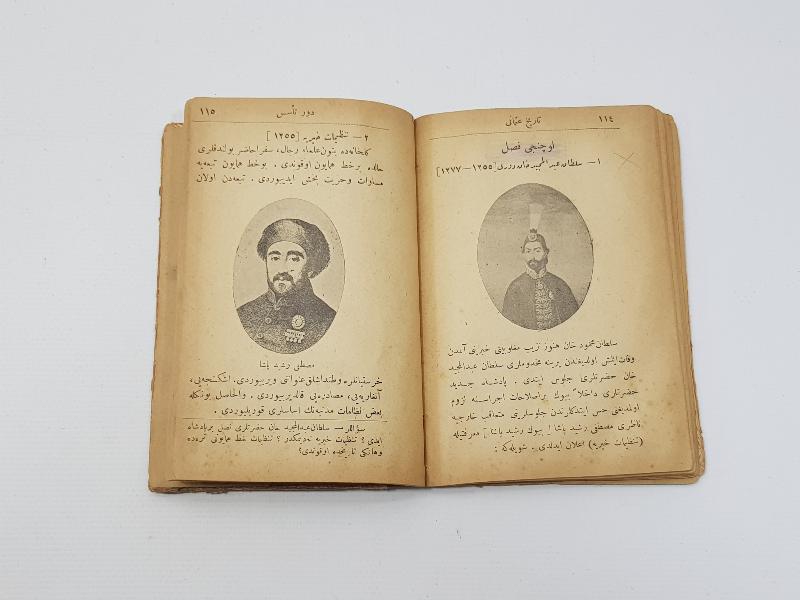 ١١٤
تاریخ عثمانی
اوچنجی فصل
١ — سلطان عبدالمجید خان دوری [١٢٥٥—١٢٧٧]
سلطان محمود خان هنوز نزیب مغلوبیتی خبرینی آلمدن
وفات ایتمش اولدیغندن یرینه مخدوملری سلطان عبدالمجید
خان حضرتلری جلوس ایتدی . پادشاه جدید
حضرتلری داخلاً بیوك بر اصلاحات اجراسنه لزوم
اولدیغنی حس ایتدکلرندن جلوسلرینی متعاقب خارجیه
ناظری مصطفی رشید پاشا [بیوك رشید پاشا] معرفتیله
(تنظیمات خیریه) اعلان ایدلدی . شویله که :
دور تأسس
١١٥
٢ — تنظیمات خیریه [١٢٥٥]
کلخانه‌ده بتون علماء، رجال، سفرا حاضر بولندقلری
حالده بر خط همایون اوقوندی . بو خط همایون تبعه‌یه
مساوات و حریت بخش ایدییوردی . تبعه‌دن اولان
مصطفی رشید پاشا
خرستیانلره وطنداشلق عنوانی ویرییوردی. اشکنجه‌یی،
آنغاریه‌یی، مصادره‌یی قالدیرییوردی . والحاصل بوتکله
بعض نظامات مدنیه‌نك اساسلری قورییلورده .
سؤاللر — سلطان عبدالمجید خان حضرتلری نصل بر پادشاه
ایدی ؟ تنظیمات خیریه نه‌دیمکدر ؟ تنظیمات خط همایونی نره‌ده
وهانکی تاریخده اوقوندی ؟